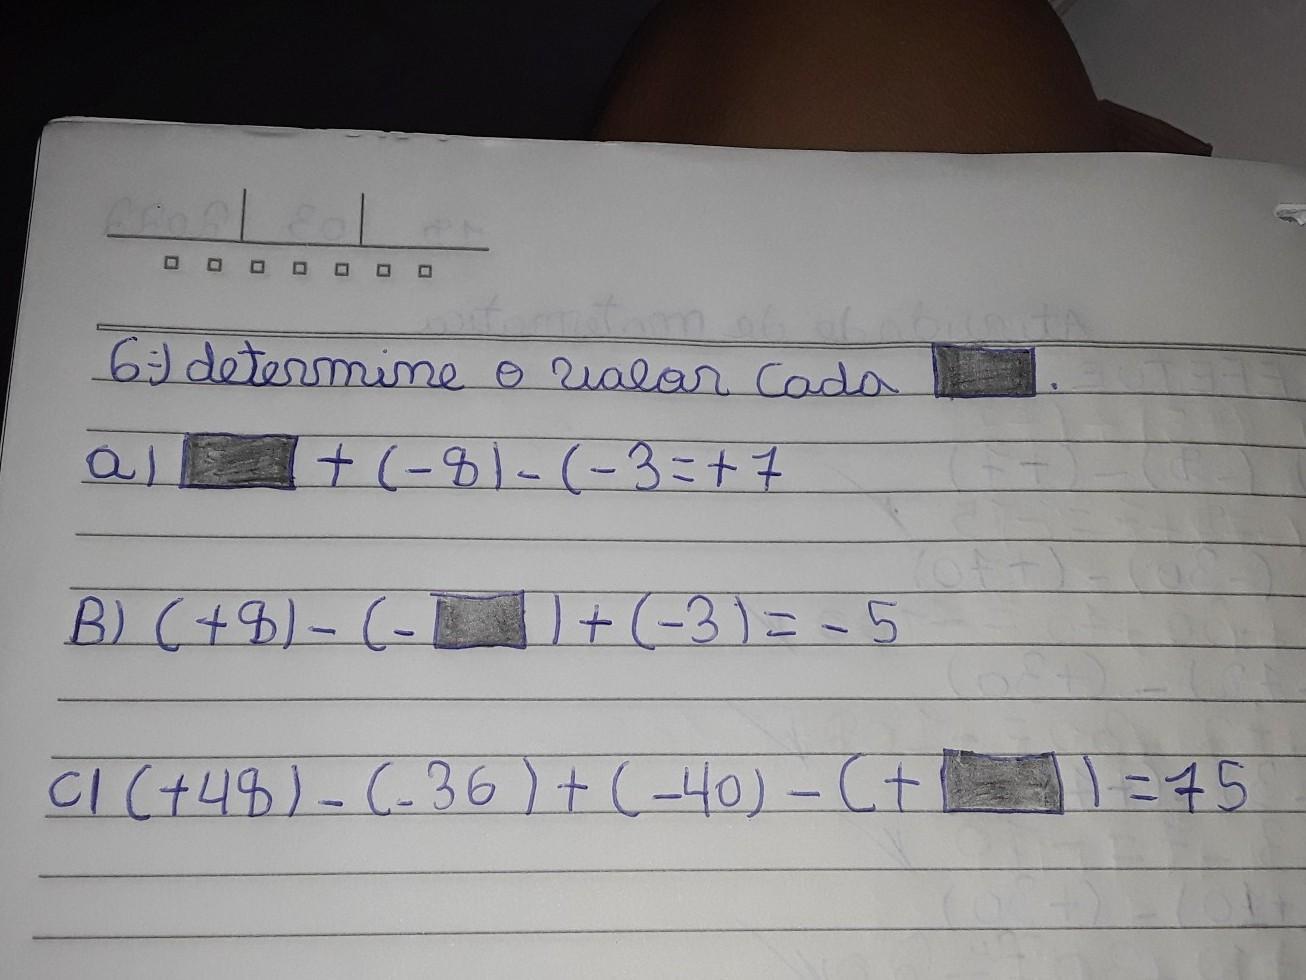 6=) determine o valor cada ■.
a) ■ + (-8) - (-3=+7
B) (+8) - (-■) + (-3) = -5
C) (+48) - (-36) + (-40) - (+■) = 75